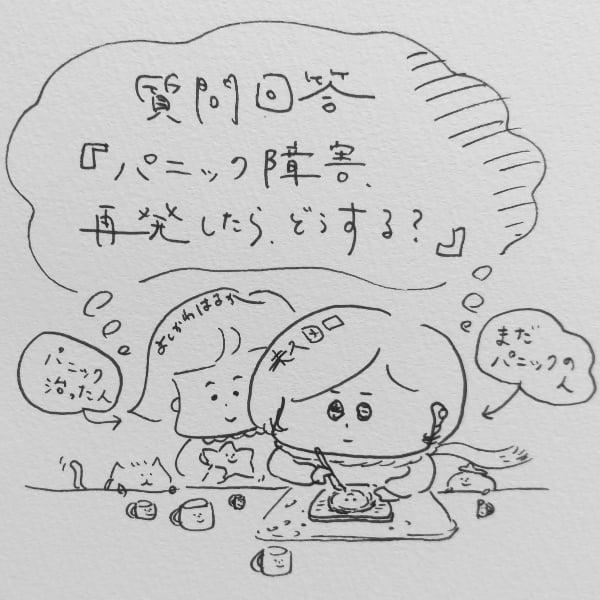 質問回答
『パニック障害、
再発したら、どうする?』
よしかわはるか
パニック
治った人
まだ
パニックの
人